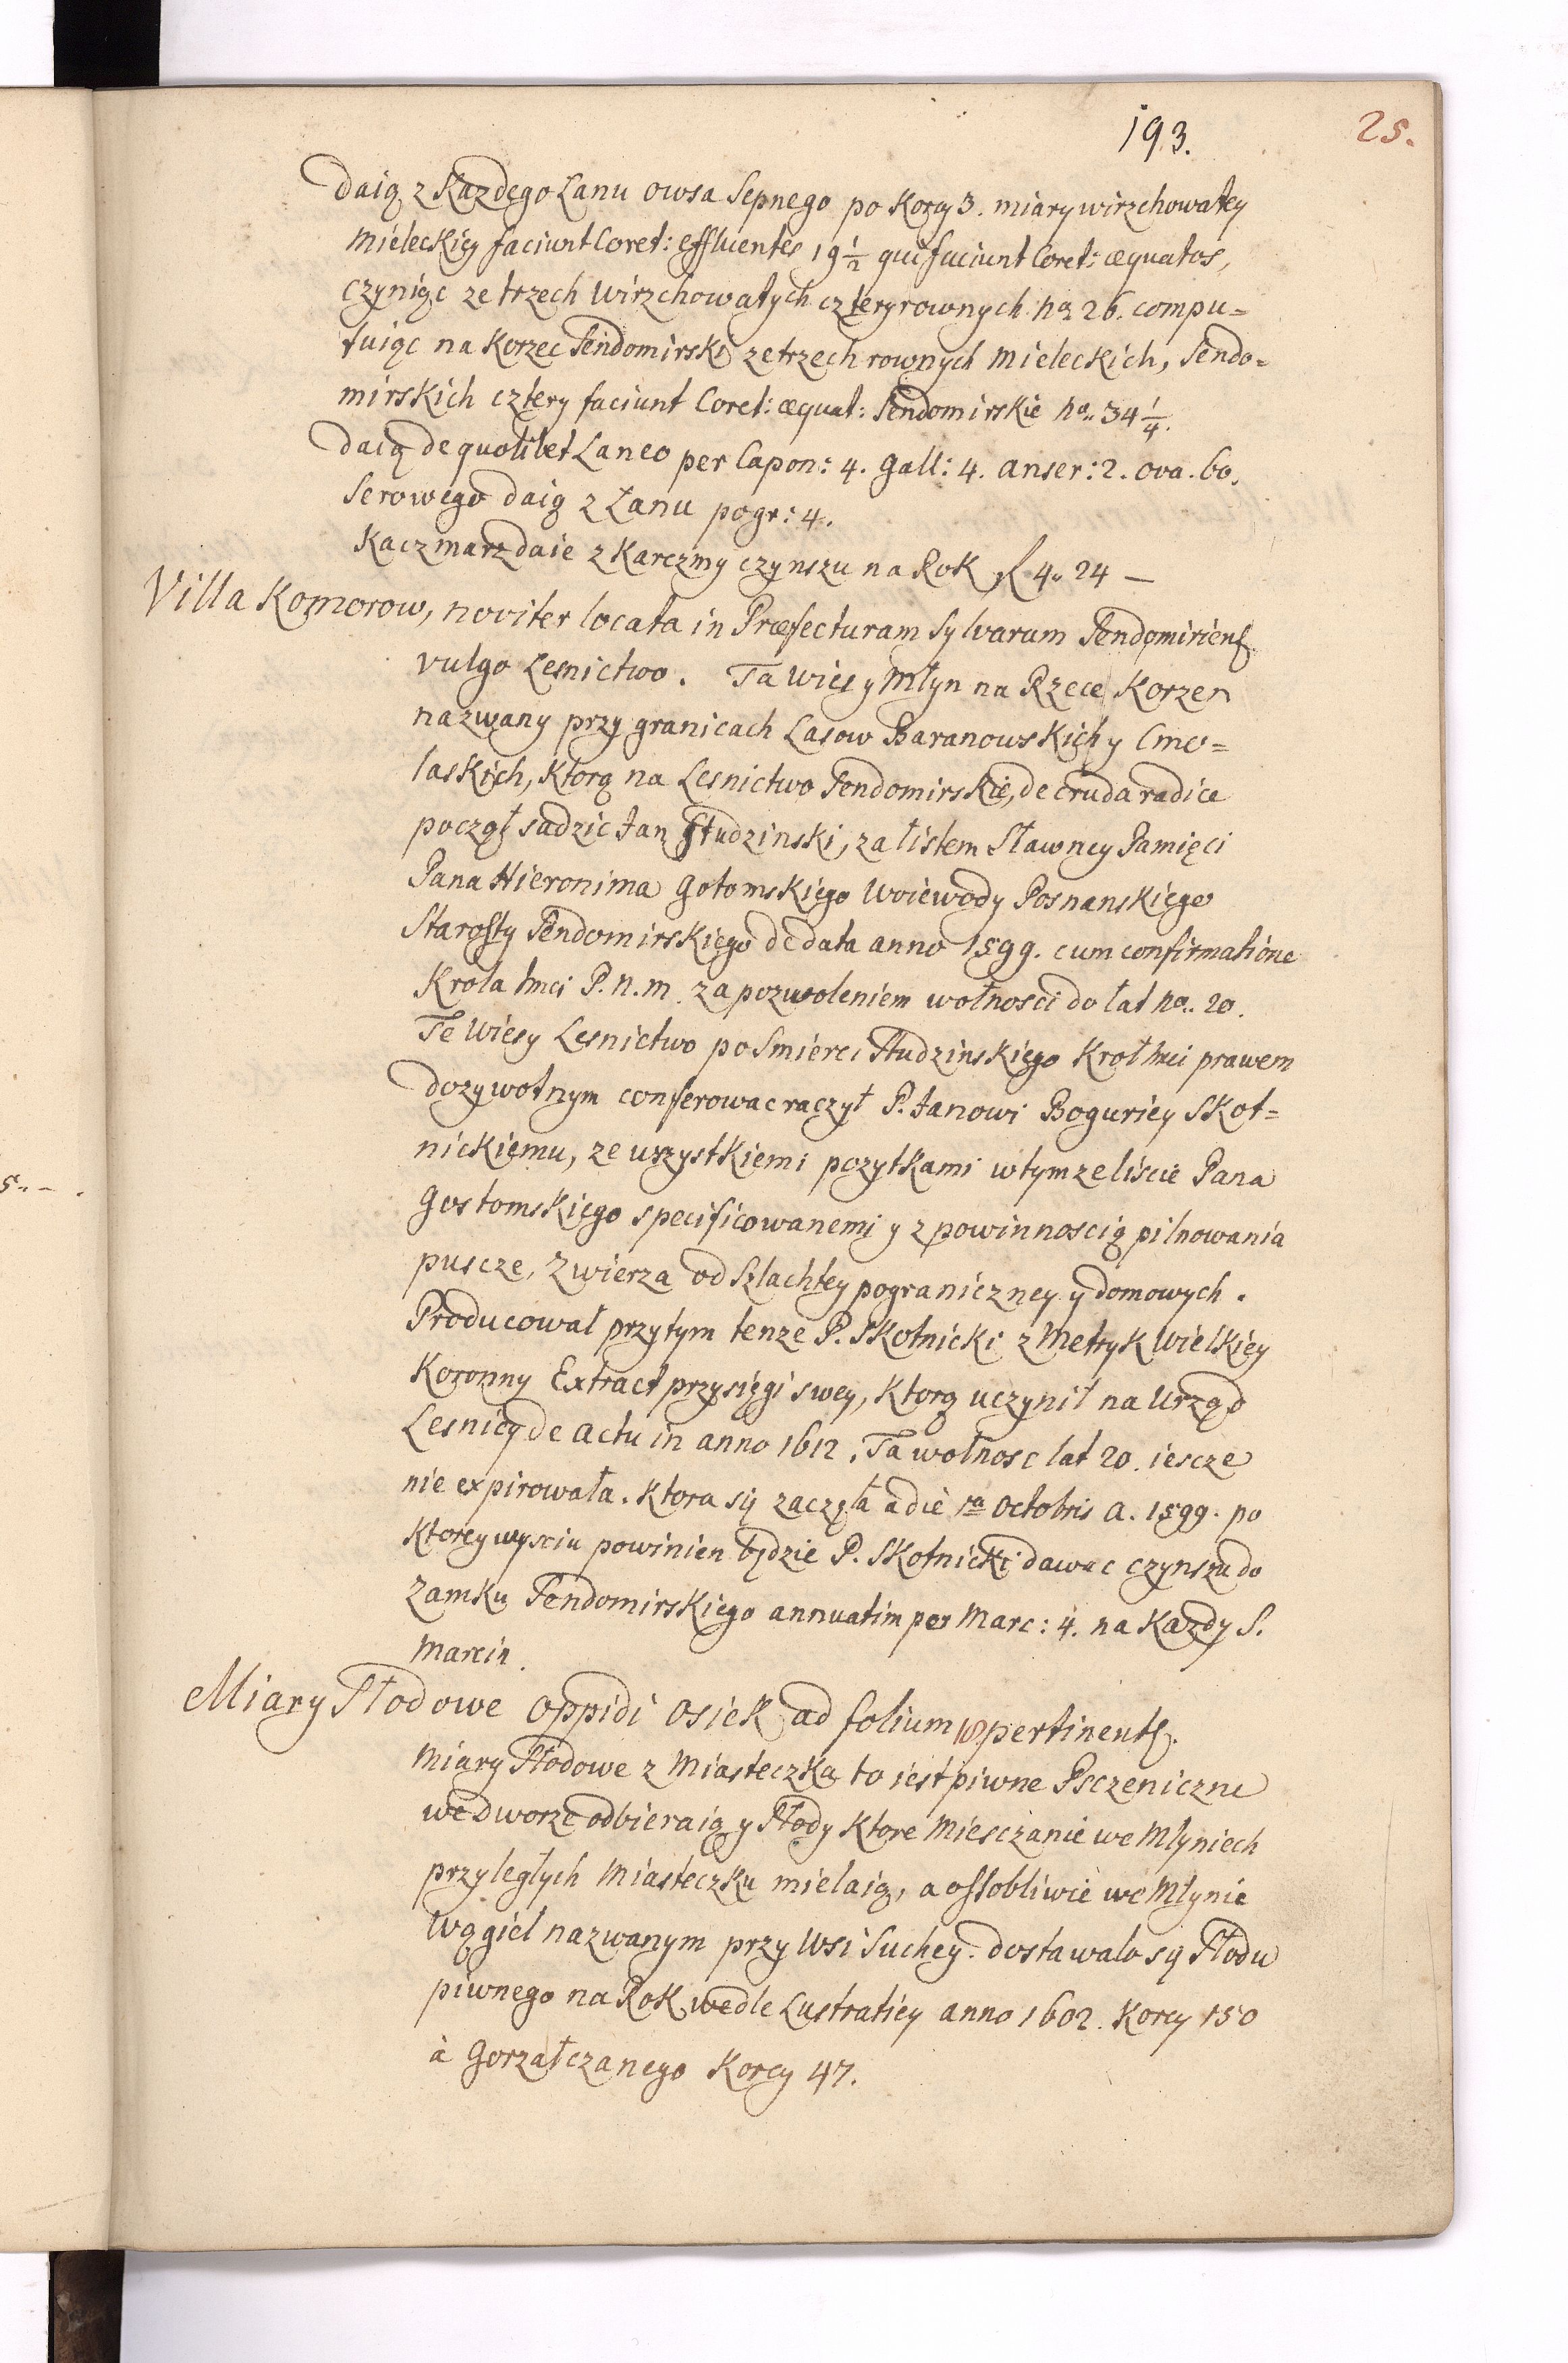 193.
25.
Daią z Kazdego Lanu owsa Sepnego po Korcy 3. miary wirzchowatey
Mieleckiey faciunt Coret: effluentes 19 1/2 qui faciunt Coret: æquatos,
czyniąc ze trzech wirzchowatych cztery rownych no 26. compu=
tuiąc na Korzec Sendomirski ze trzech rownych Mieleckich, Sendo=
mirskich cztery faciunt Coret: æquat: Sendomirskie no.. 34 1/4.
Daią de quolibet Laneo per Capon: 4. Gall: 4. Anser: 2. ova. 60.
Serowego daią z Łanu po gr: 4.
Kaczmarz daie z Karczmy czynszu na Rok fl 4,, 24 —
Villa Komorow, noviter locata in Præfecturam Sylvarum Sendomiriens.
vulgo Lesnictwo. Ta Wies y Młyn na Rzece Korzen
nazwany przy granicach Lasow Baranowskich y Cmo=
laskich, Ktorą na Lesnictwo Sendomirskie, de cruda radice
począł sadzic Jan Studzinski, za listem Sławney Pamięci
Pana Hieronima Gotomskiego Woiewody Posnanskiego
Starosty Sendomirskiego de data anno 1599. cum confirmatione
Krola Jmci P. N. M. za pozwoleniem wołnosci do lat no.. 20.
Te Wies y Lesnictwo po Smierci Studzinskiego Krol Jmci prawem
dozywotnym conferowac raczył P. Janowi Boguriey Skot=
nickiemu, ze wszystkiemi pozytkami w tymze liscie Pana
Gostomskiego specificowanemi y z powinnoscią pilnowania
puscze, Zwierza od Szlachtey pograniczney y domowych.
Producował przytym tenze P. Skotnicki z Metryk Wielkiey
Koronny Extract przysięgi swey, Ktorą uczynił na Urząd
Lesniey de Actu in anno 1612. Ta wołnosc lat 20. iescze
nie expirowała. Ktora się zaczęła a die 1a Octobris A. 1599. po
Ktorey wysciu powinien będzie P. Skotnicki dawac czynszu do
Zamku Sendomirskiego annuatim per Marc: 4. na Kazdy S.
Marcin.
Miary Słodowe oppidi Osiek ad folium 18. pertinents.
Miary Słodowe z Miasteczka to iest piwne Psczeniczne
we Dworze odbieraią y Słody Ktore Miesczanie we Młyniech
przyległych Miasteczku mielaią, a ossobliwie we Młynie
Wągiel nazwanym przy Wsi Suchey. dostawało się Słodu
piwnego na Rok wedle Lustratiey anno 1602. Korcy 150
à Gorzałczanego Korcy 47.